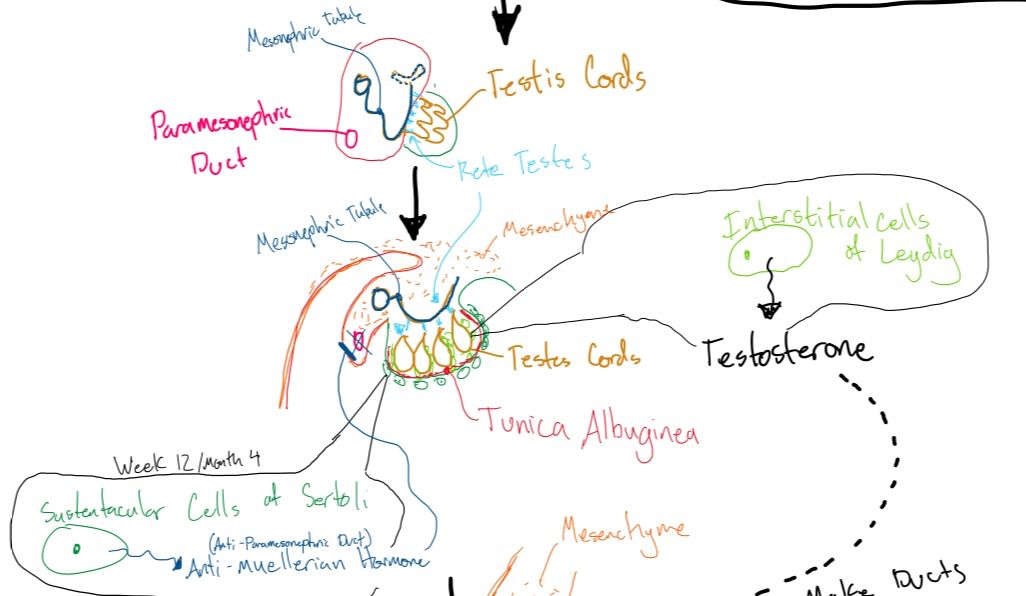 Mesonephric Tubule
Testis Cords
Paramesonephric
Duct
Rete Testes
Mesonephric Tubule
Mesenchyme
Interstitial cells
of Leydig
Testosterone
Testes Cords
Tunica Albuginea
Week 12/Month 4
Sustentacular Cells of Sertoli
(Anti-Paramesonephric Duct)
Anti-Muellerian Hormone
Mesenchyme
Ducts